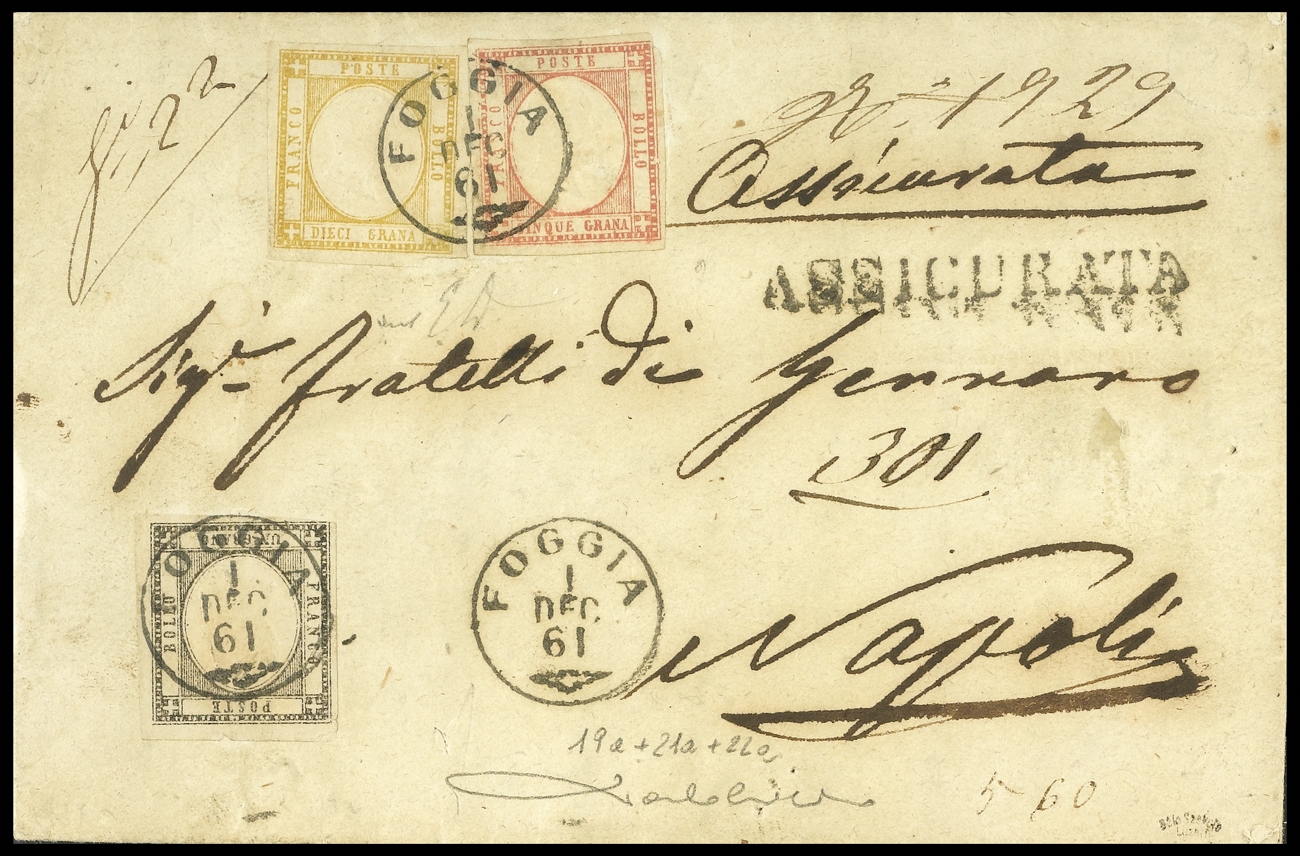 POSTE
FRANCO
BOLLO
DIECI GRANA
POSTE
BOLLO
CINQUE GRANA
FOGGIA
1
DEC
61
1929
Assicurata
ASSICURATA
Sigri fratelli di Gennaro
301
Napoli
UN GRANO
BOLLO
FRANCO
POSTE
FOGGIA
1
DEC
61
FOGGIA
1
DEC
61
19a+21a+22a
5 60